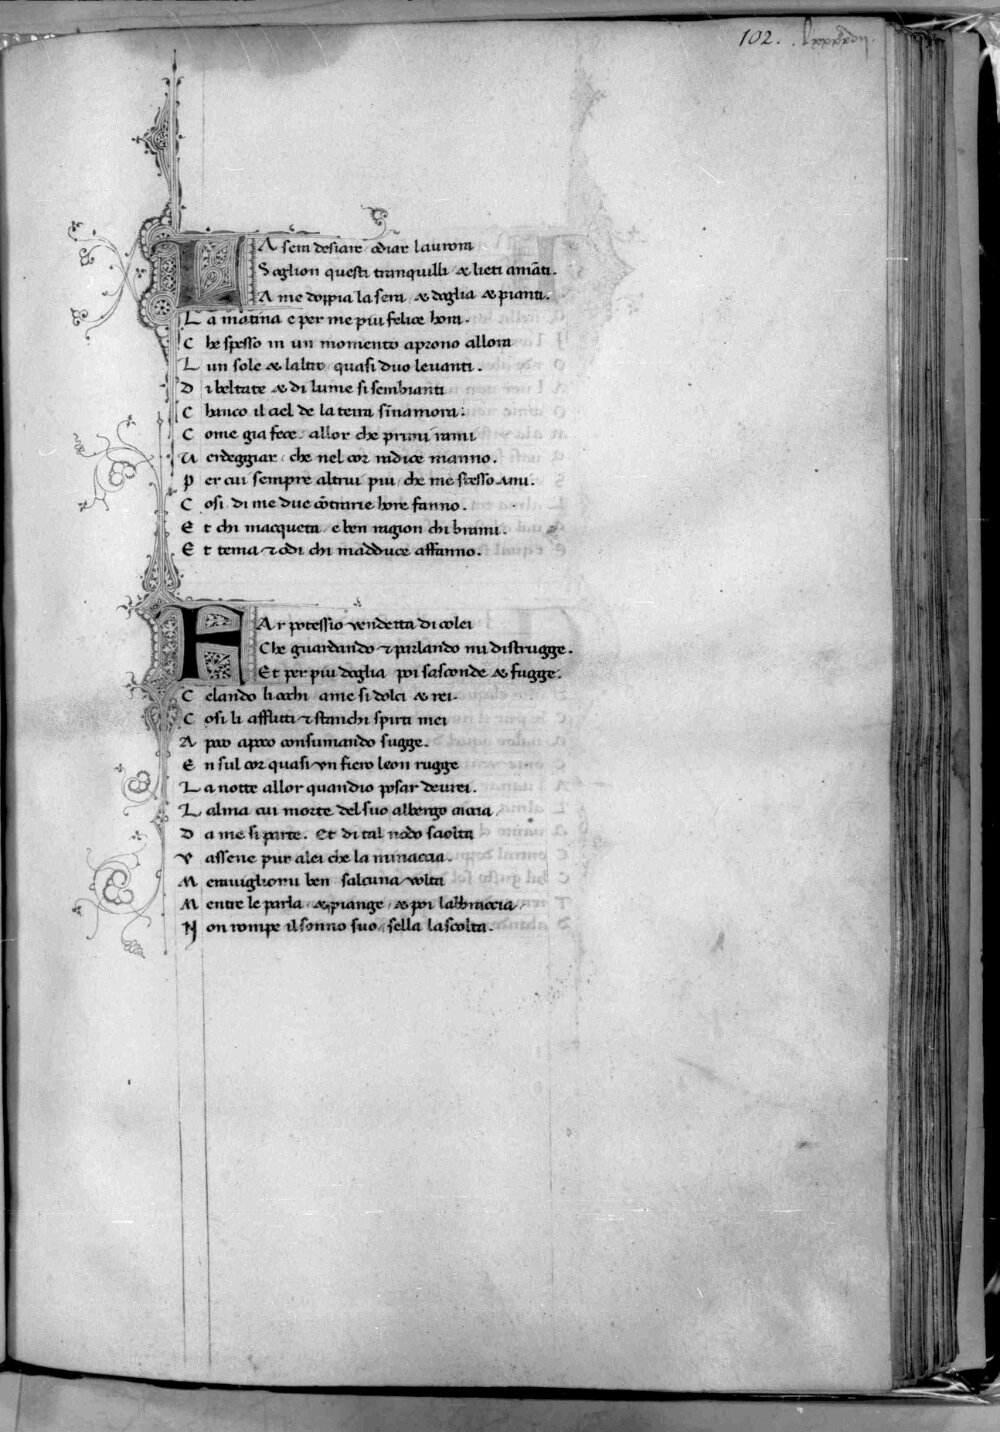 102. lxxxxvii.
LA sera desiare odiar laurora
Soglion questi tranquilli & lieti amãti.
A me doppia la sera & doglia & pianti.
La matina e per me piu felice hora.
Che spesso in un momento aprono allora
Lun sole & laltro quasi duo levanti.
Di beltate & di lume si sembianti
Chanco il ciel de la terra sĩnamora:
Come gia fece allor che primi rami
Verdeggiar che nel cor radice manno.
Per cui sempre altrui piu che me stesso ami.
Cosi di me due cõtrarie hore fanno.
Et chi macqueta e ben ragion chi brami.
Et tema ⁊ odi chi madduce affanno.
FAr potessio vendetta di colei
Che guardando ⁊ parlando mi distrugge.
Et per piu doglia poi sasconde & fugge.
Celando li occhi a me si dolci & rei.
Cosi li afflitti ⁊ stanchi spirti mei
A poco apoco consumando sugge.
En sul cor quasi un fiero leon rugge
La notte allor quandio posar devrei.
Lalma cui morte del suo albergo caccia
Da me si parte. Et di tal nodo sciolta
Vassene pur alei che la minaccia.
Meravigliomi ben salcuna volta
Mentre le parla & piange & poi labbraccia
Non rompe il sonno suo sella lascolta.